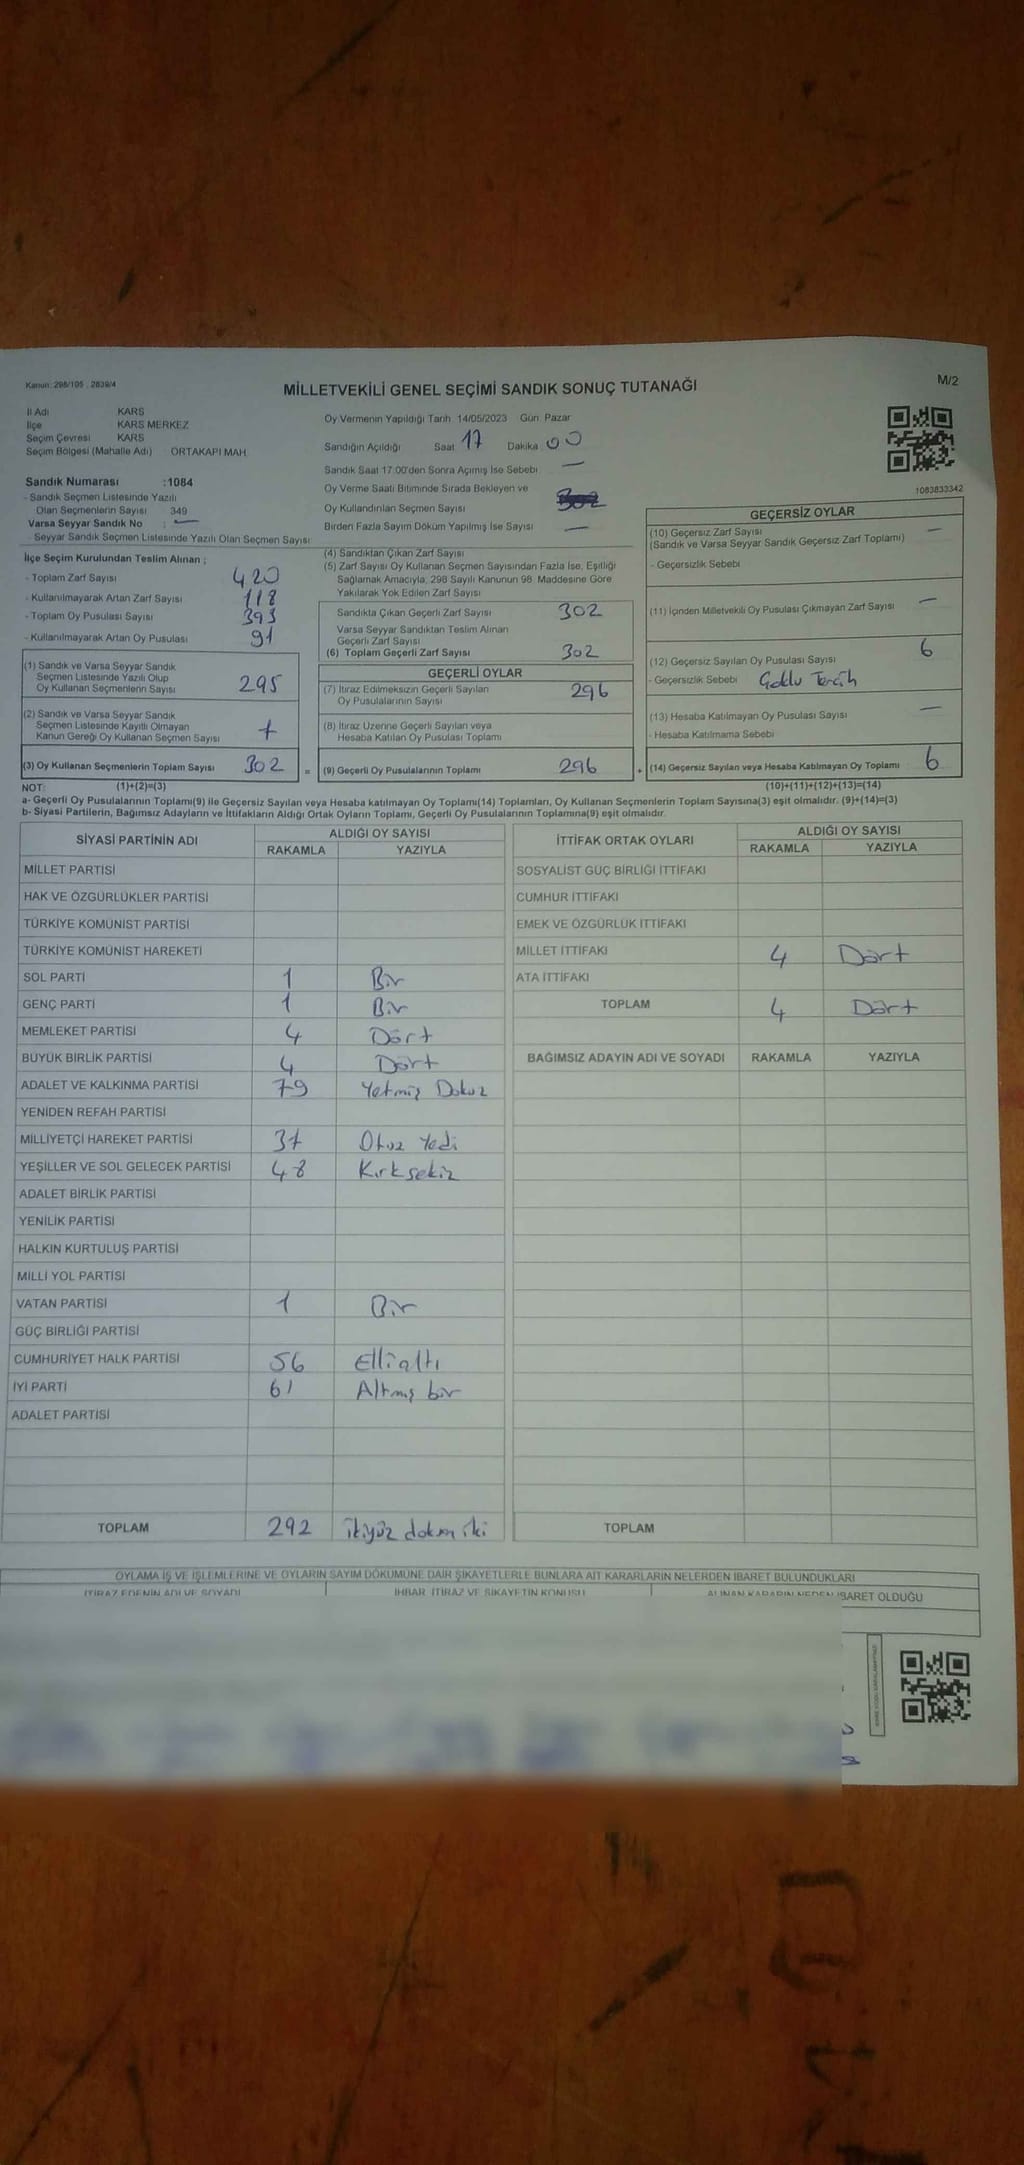 Kanun: 298/105 , 2839/4
M/2
MİLLETVEKİLİ GENEL SEÇİMİ SANDIK SONUÇ TUTANAĞI
İl Adı KARS
İlçe KARS MERKEZ
Seçim Çevresi KARS
Seçim Bölgesi (Mahalle Adı) ORTAKAPI MAH.
Sandık Numarası :1084
- Sandık Seçmen Listesinde Yazılı
Olan Seçmenlerin Sayısı 349
Varsa Seyyar Sandık No : —
- Seyyar Sandık Seçmen Listesinde Yazılı Olan Seçmen Sayısı
Oy Vermenin Yapıldığı Tarih 14/05/2023 Gün Pazar
Sandığın Açıldığı Saat 17 Dakika 00
Sandık Saat 17:00'den Sonra Açımış İse Sebebi —
Oy Verme Saati Bitiminde Sırada Bekleyen ve
Oy Kullandırılan Seçmen Sayısı
Birden Fazla Sayım Döküm Yapılmış İse Sayısı —
1083833342
İlçe Seçim Kurulundan Teslim Alınan ;
- Toplam Zarf Sayısı 420
- Kullanılmayarak Artan Zarf Sayısı 118
- Toplam Oy Pusulası Sayısı 393
- Kullanılmayarak Artan Oy Pusulası 91
(1) Sandık ve Varsa Seyyar Sandık
Seçmen Listesinde Yazılı Olup
Oy Kullanan Seçmenlerin Sayısı 295
(2) Sandık ve Varsa Seyyar Sandık
Seçmen Listesinde Kayıtlı Olmayan
Kanun Gereği Oy Kullanan Seçmen Sayısı 7
(3) Oy Kullanan Seçmenlerin Toplam Sayısı 302 =
(1)+(2)=(3)
(4) Sandıktan Çıkan Zarf Sayısı
(5) Zarf Sayısı Oy Kullanan Seçmen Sayısından Fazla İse, Eşitliği
Sağlamak Amacıyla, 298 Sayılı Kanunun 98. Maddesine Göre
Yakılarak Yok Edilen Zarf Sayısı
Sandıkta Çıkan Geçerli Zarf Sayısı 302
Varsa Seyyar Sandıktan Teslim Alınan
Geçerli Zarf Sayısı
(6) Toplam Geçerli Zarf Sayısı 302
GEÇERLİ OYLAR
(7) İtiraz Edilmeksizin Geçerli Sayılan
Oy Pusulalarının Sayısı 296
(8) İtiraz Üzerine Geçerli Sayılan veya
Hesaba Katılan Oy Pusulası Toplamı
(9) Geçerli Oy Pusulalarının Toplamı 296 +
GEÇERSİZ OYLAR
(10) Geçersiz Zarf Sayısı —
(Sandık ve Varsa Seyyar Sandık Geçersiz Zarf Toplamı)
- Geçersizlik Sebebi
(11) İçinden Milletvekili Oy Pusulası Çıkmayan Zarf Sayısı —
(12) Geçersiz Sayılan Oy Pusulası Sayısı 6
- Geçersizlik Sebebi Tercih
(13) Hesaba Katılmayan Oy Pusulası Sayısı —
- Hesaba Katılmama Sebebi
(14) Geçersiz Sayılan veya Hesaba Katılmayan Oy Toplamı 6
(10)+(11)+(12)+(13)=(14)
NOT:
a- Geçerli Oy Pusulalarının Toplamı(9) ile Geçersiz Sayılan veya Hesaba katılmayan Oy Toplamı(14) Toplamları, Oy Kullanan Seçmenlerin Toplam Sayısına(3) eşit olmalıdır. (9)+(14)=(3)
b- Siyasi Partilerin, Bağımsız Adayların ve İttifakların Aldığı Ortak Oyların Toplamı, Geçerli Oy Pusulalarının Toplamına(9) eşit olmalıdır.
SİYASİ PARTİNİN ADI ALDIĞI OY SAYISI
RAKAMLA YAZIYLA
MİLLET PARTİSİ
HAK VE ÖZGÜRLÜKLER PARTİSİ
TÜRKİYE KOMÜNİST PARTİSİ
TÜRKİYE KOMÜNİST HAREKETİ
SOL PARTİ 1 Bir
GENÇ PARTİ 1 Bir
MEMLEKET PARTİSİ 4 Dört
BÜYÜK BİRLİK PARTİSİ 4 Dört
ADALET VE KALKINMA PARTİSİ 79 Yetmiş Dokuz
YENİDEN REFAH PARTİSİ
MİLLİYETÇİ HAREKET PARTİSİ 37 Otuz Yedi
YEŞİLLER VE SOL GELECEK PARTİSİ 48 Kırksekiz
ADALET BİRLİK PARTİSİ
YENİLİK PARTİSİ
HALKIN KURTULUŞ PARTİSİ
MİLLİ YOL PARTİSİ
VATAN PARTİSİ 1 Bir
GÜÇ BİRLİĞİ PARTİSİ
CUMHURİYET HALK PARTİSİ 56 Ellialtı
İYİ PARTİ 61 Altmış bir
ADALET PARTİSİ
TOPLAM 292 ikiyüz doksan iki
İTTİFAK ORTAK OYLARI ALDIĞI OY SAYISI
RAKAMLA YAZIYLA
SOSYALİST GÜÇ BİRLİĞİ İTTİFAKI
CUMHUR İTTİFAKI
EMEK VE ÖZGÜRLÜK İTTİFAKI
MİLLET İTTİFAKI 4 Dört
ATA İTTİFAKI
TOPLAM 4 Dört
BAĞIMSIZ ADAYIN ADI VE SOYADI RAKAMLA YAZIYLA
TOPLAM
OYLAMA İŞ VE İŞLEMLERİNE VE OYLARIN SAYIM DÖKÜMÜNE DAİR ŞİKAYETLERLE BUNLARA AİT KARARLARIN NELERDEN İBARET BULUNDUKLARI
İTİRAZ EDENİN ADI VE SOYADI İHBAR, İTİRAZ VE ŞİKAYETİN KONUSU ALINAN KARARIN NEDEN İBARET OLDUĞU